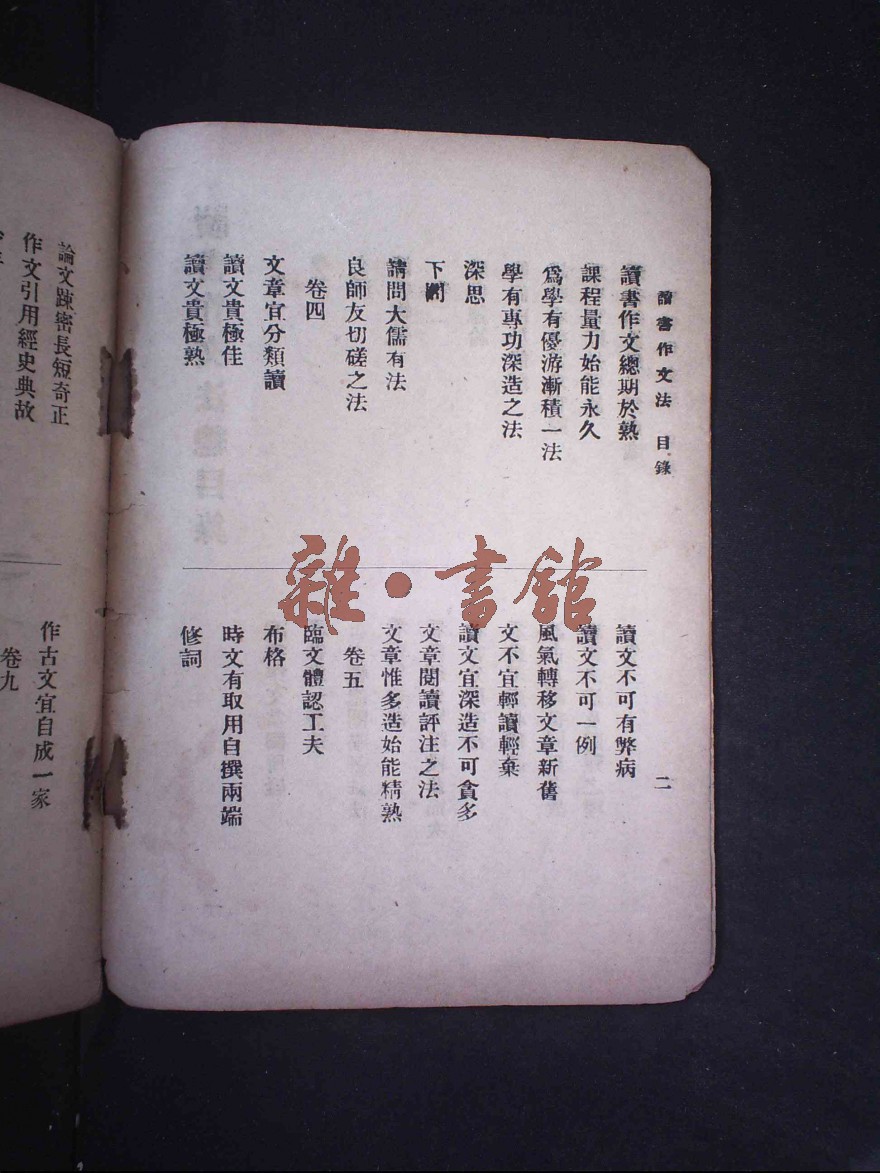 讀書作文法　目錄
二
讀書作文總期於熟
課程量力始能永久
爲學有優游漸積一法
學有專功深造之法
深思
下
請問大儒有法
良師友切磋之法
卷四
文章宜分類讀
讀文貴極佳
讀文貴極熟
讀文不可有弊病
讀文不可一例
風氣轉移文章新舊
文不宜輕讀輕棄
讀文宜深造不可貪多
文章閱讀評注之法
文章惟多造始能精熟
卷五
臨文體認工夫
布格
時文有取用自撰兩端
修詞
論文疎密長短奇正
作文引用經史典故
作古文宜自成一家
卷九
雜·書館